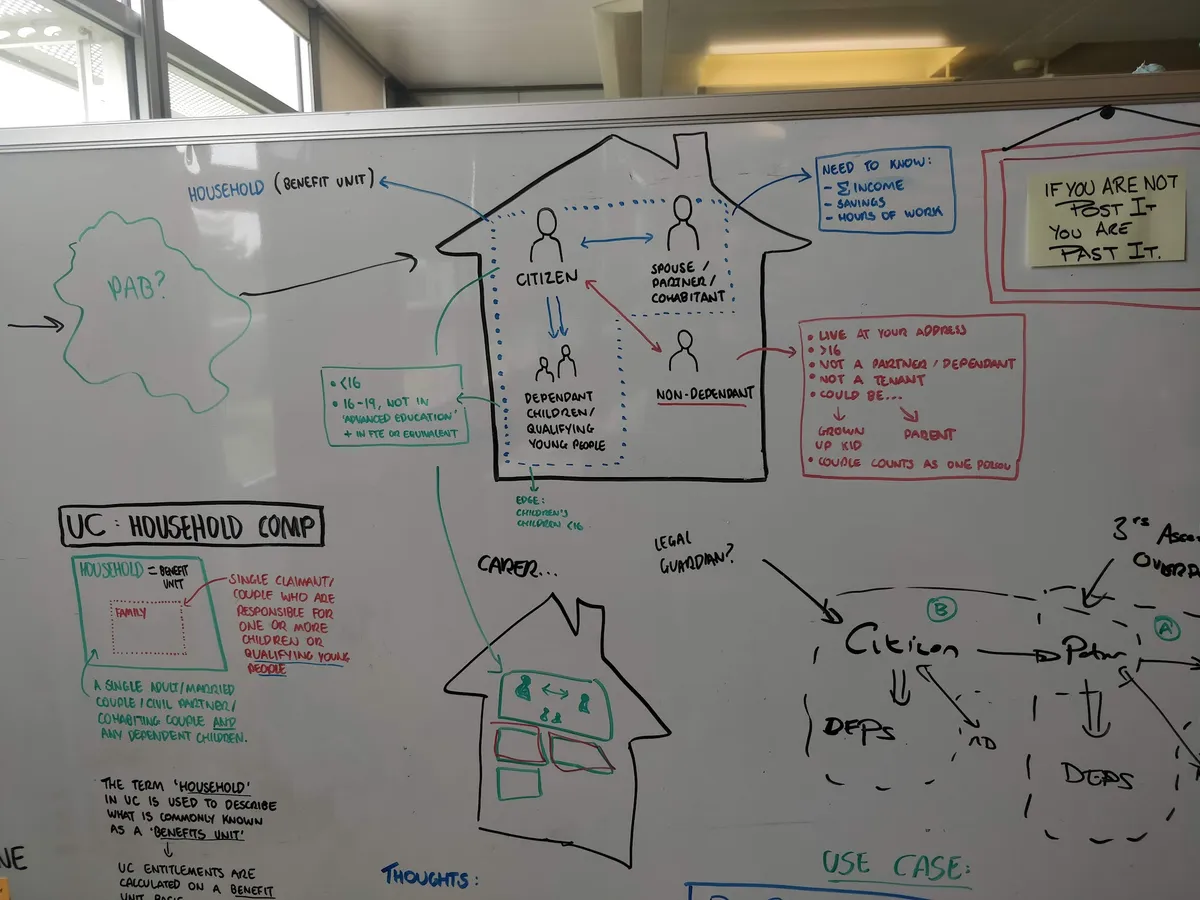 HOUSEHOLD (BENEFIT UNIT)
PAB?
CITIZEN
SPOUSE /
PARTNER/
COHABITANT
DEPENDANT
CHILDREN/
QUALIFYING
YOUNG PEOPLE
NON-DEPENDANT
NEED TO KNOW:
- Σ INCOME
- SAVINGS
- HOURS OF WORK
IF YOU ARE NOT
POST IT
YOU ARE
PAST IT.
• LIVE AT YOUR ADDRESS
• >16
• NOT A PARTNER / DEPENDANT
• NOT A TENANT
• COULD BE...
GROWN
UP KID
PARENT
• COUPLE COUNTS AS ONE PERSON
• <16
• 16-19, NOT IN
'ADVANCED EDUCATION'
+ IN FTE OR EQUIVALENT
EDGE:
CHILDREN'S
CHILDREN <16
UC: HOUSEHOLD COMP
HOUSEHOLD = BENEFIT
UNIT
FAMILY
SINGLE CLAIMANT/
COUPLE WHO ARE
RESPONSIBLE FOR
ONE OR MORE
CHILDREN OR
QUALIFYING YOUNG
PEOPLE
A SINGLE ADULT/MARRIED
COUPLE/CIVIL PARTNER/
COHABITING COUPLE AND
ANY DEPENDENT CHILDREN.
THE TERM 'HOUSEHOLD'
IN UC IS USED TO DESCRIBE
WHAT IS COMMONLY KNOWN
AS A 'BENEFITS UNIT'
UC ENTITLEMENTS ARE
CALCULATED ON A BENEFIT
UNIT BASIS
CARER...
THOUGHTS:
LEGAL
GUARDIAN?
B
A
Citizen
DEPS
ND
DEPS
USE CASE: